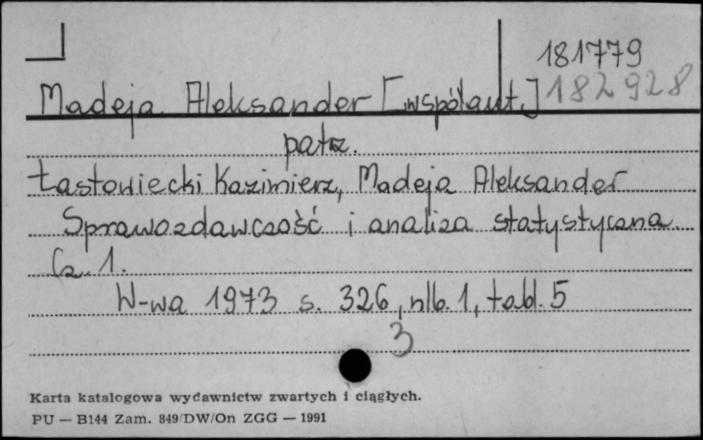 181779
Madeja Aleksander [współaut.] 182928
patrz.
Łastowiecki Kazimierz, Madeja Aleksander
Sprawozdawczość i analiza statystyczna
Cz. 1.
W-wa 1973 s. 326, nlb. 1, tabl. 5
3
Karta katalogowa wydawnictw zwartych i ciągłych.
PU — B144 Zam. 849/DW/On ZGG — 1991